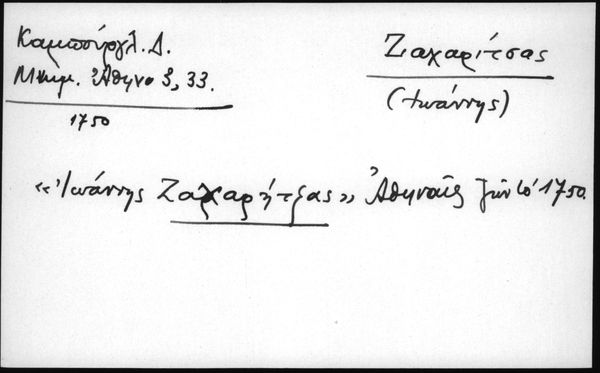 Καμπούργλ. Δ.
Μνημ. Ἀθην. 3, 33.
1750
Ζαχαρίτσας
(Ἰωάννης)
«Ἰωάννης Ζαχαρήτζας» Ἀθηναῖος ζῶν τὸ 1750.